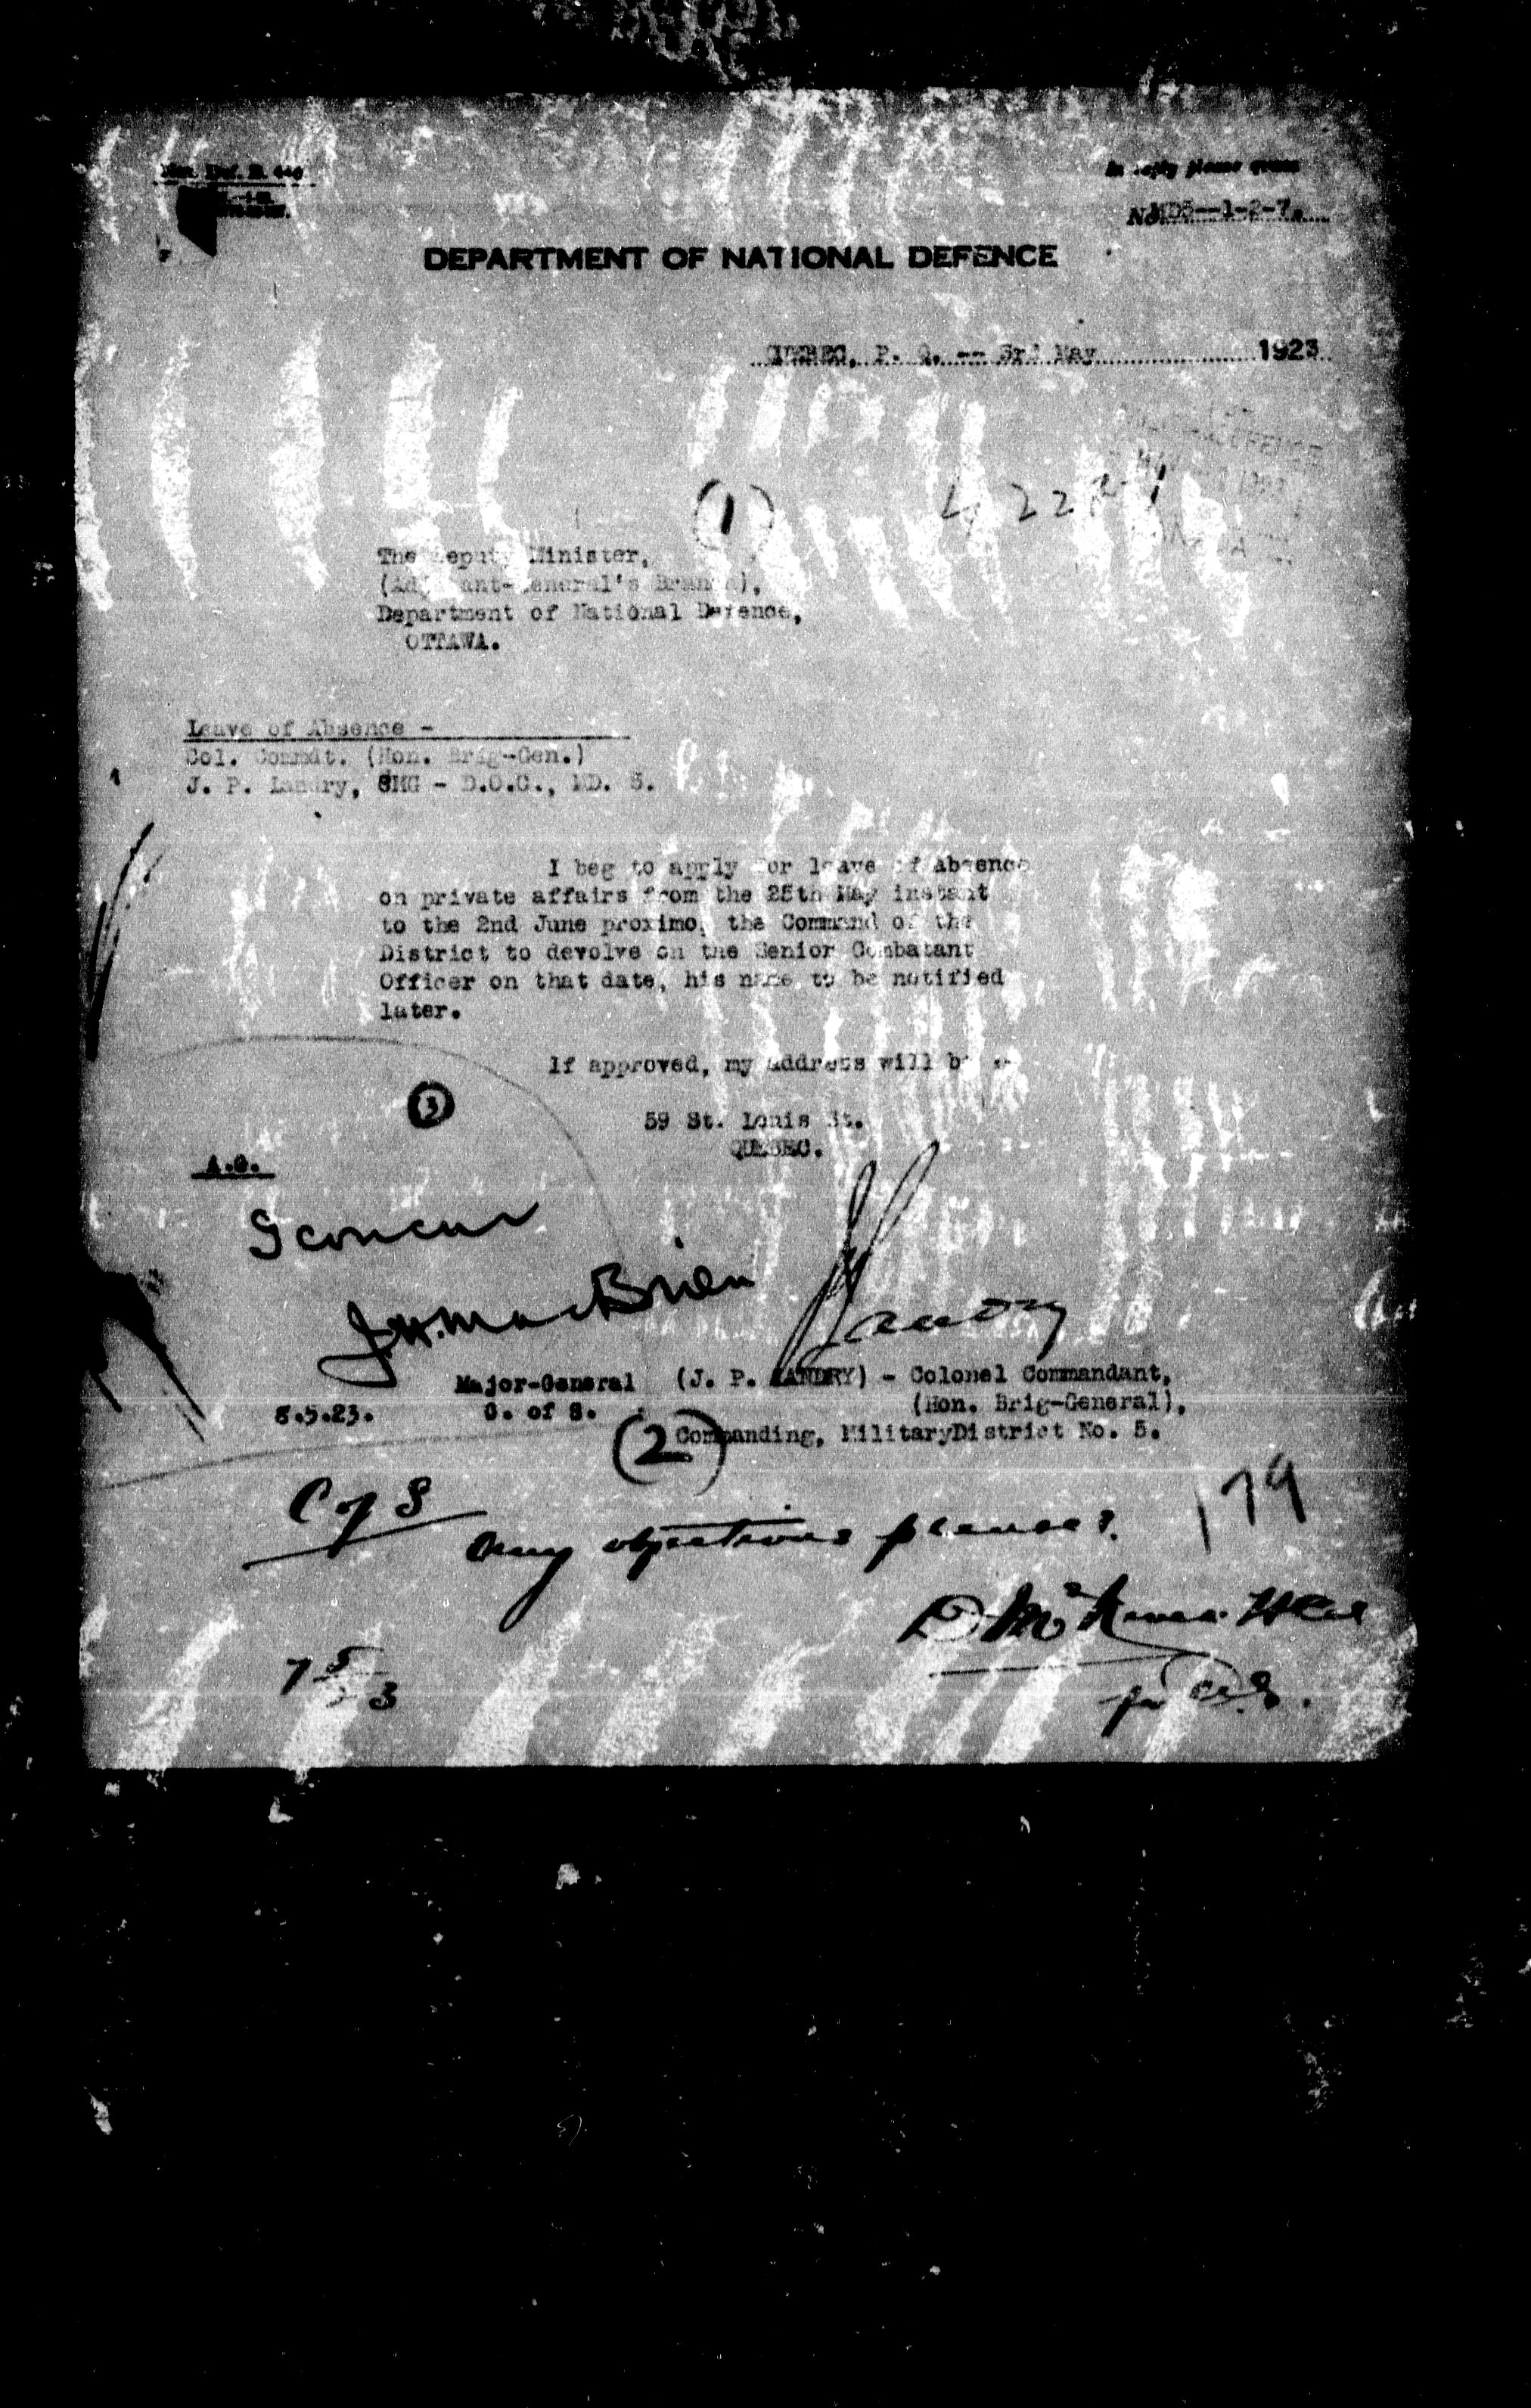 In reply please quote
No. MD5--1-2-7.
DEPARTMENT OF NATIONAL DEFENCE
QUEBEC, P. Q. -- 3rd May 1923
(1)
The Deputy Minister,
(Adjutant-General's Branch),
Department of National Defence,
OTTAWA.
Leave of Absence -
Col. Commdt. (Hon. Brig-Gen.)
J. P. Landry, CMG - D.O.C., MD. 5.
I beg to apply for leave of Absence
on private affairs from the 25th May instant
to the 2nd June proximo, the Command of the
District to devolve on the Senior Combatant
Officer on that date, his name to be notified
later.
If approved, my address will be
59 St. Louis St.
QUEBEC.
(3)
A.G.
I concur
J.H. MacBrien
Landry
Major-General
C. of S.
8.5.23.
(J. P. LANDRY) - Colonel Commandant,
(Hon. Brig-General),
Commanding, MilitaryDistrict No. 5.
(2)
179
C of S
Any objections please?
for A.G.
7 5 3